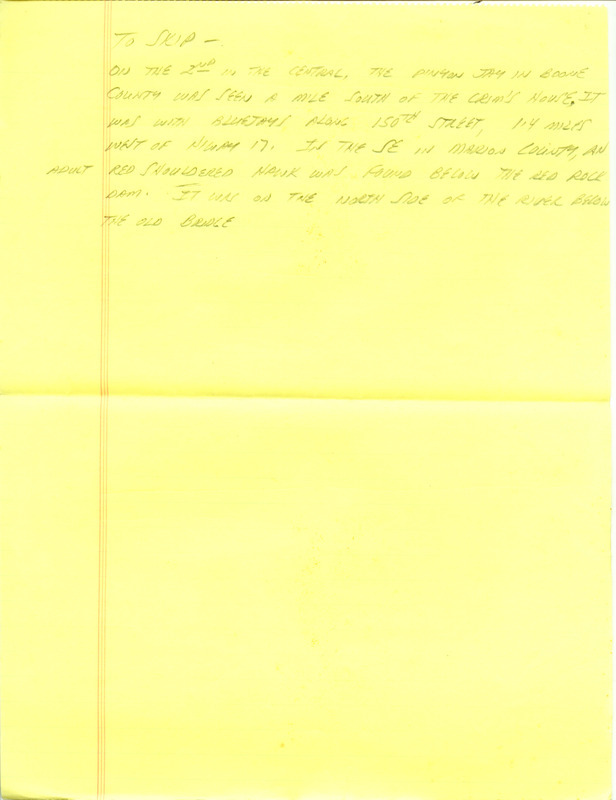 To SKIP —
ON THE 2ND IN THE CENTRAL, THE PINYON JAY IN BOONE
COUNTY WAS SEEN A MILE SOUTH OF THE CRIM'S HOUSE. IT
WAS WITH BLUEJAYS ALONG 150TH STREET, 1.4 MILES
WEST OF HIWAY 17. IN THE SE IN MARION COUNTY, AN
ADULT RED SHOULDERED HAWK WAS FOUND BELOW THE RED ROCK
DAM. IT WAS ON THE NORTH SIDE OF THE RIVER BELOW
THE OLD BRIDGE